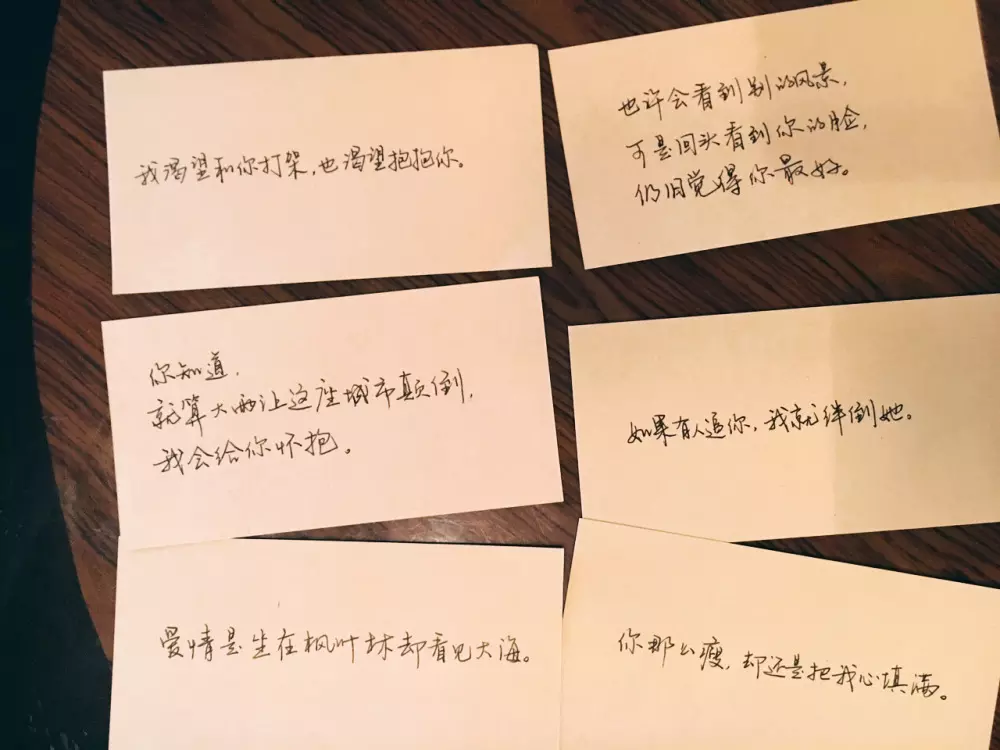 我渴望和你打架,也渴望抱抱你。
也许会看到别的风景,
可是回头看到你的脸,
仍旧觉得你最好。
你知道,
就算大雨让这座城市颠倒,
我会给你怀抱。
如果有人追你,我就绊倒她。
爱情是坐在枫叶林却看见大海。
你那么瘦,却还是把我心填满。